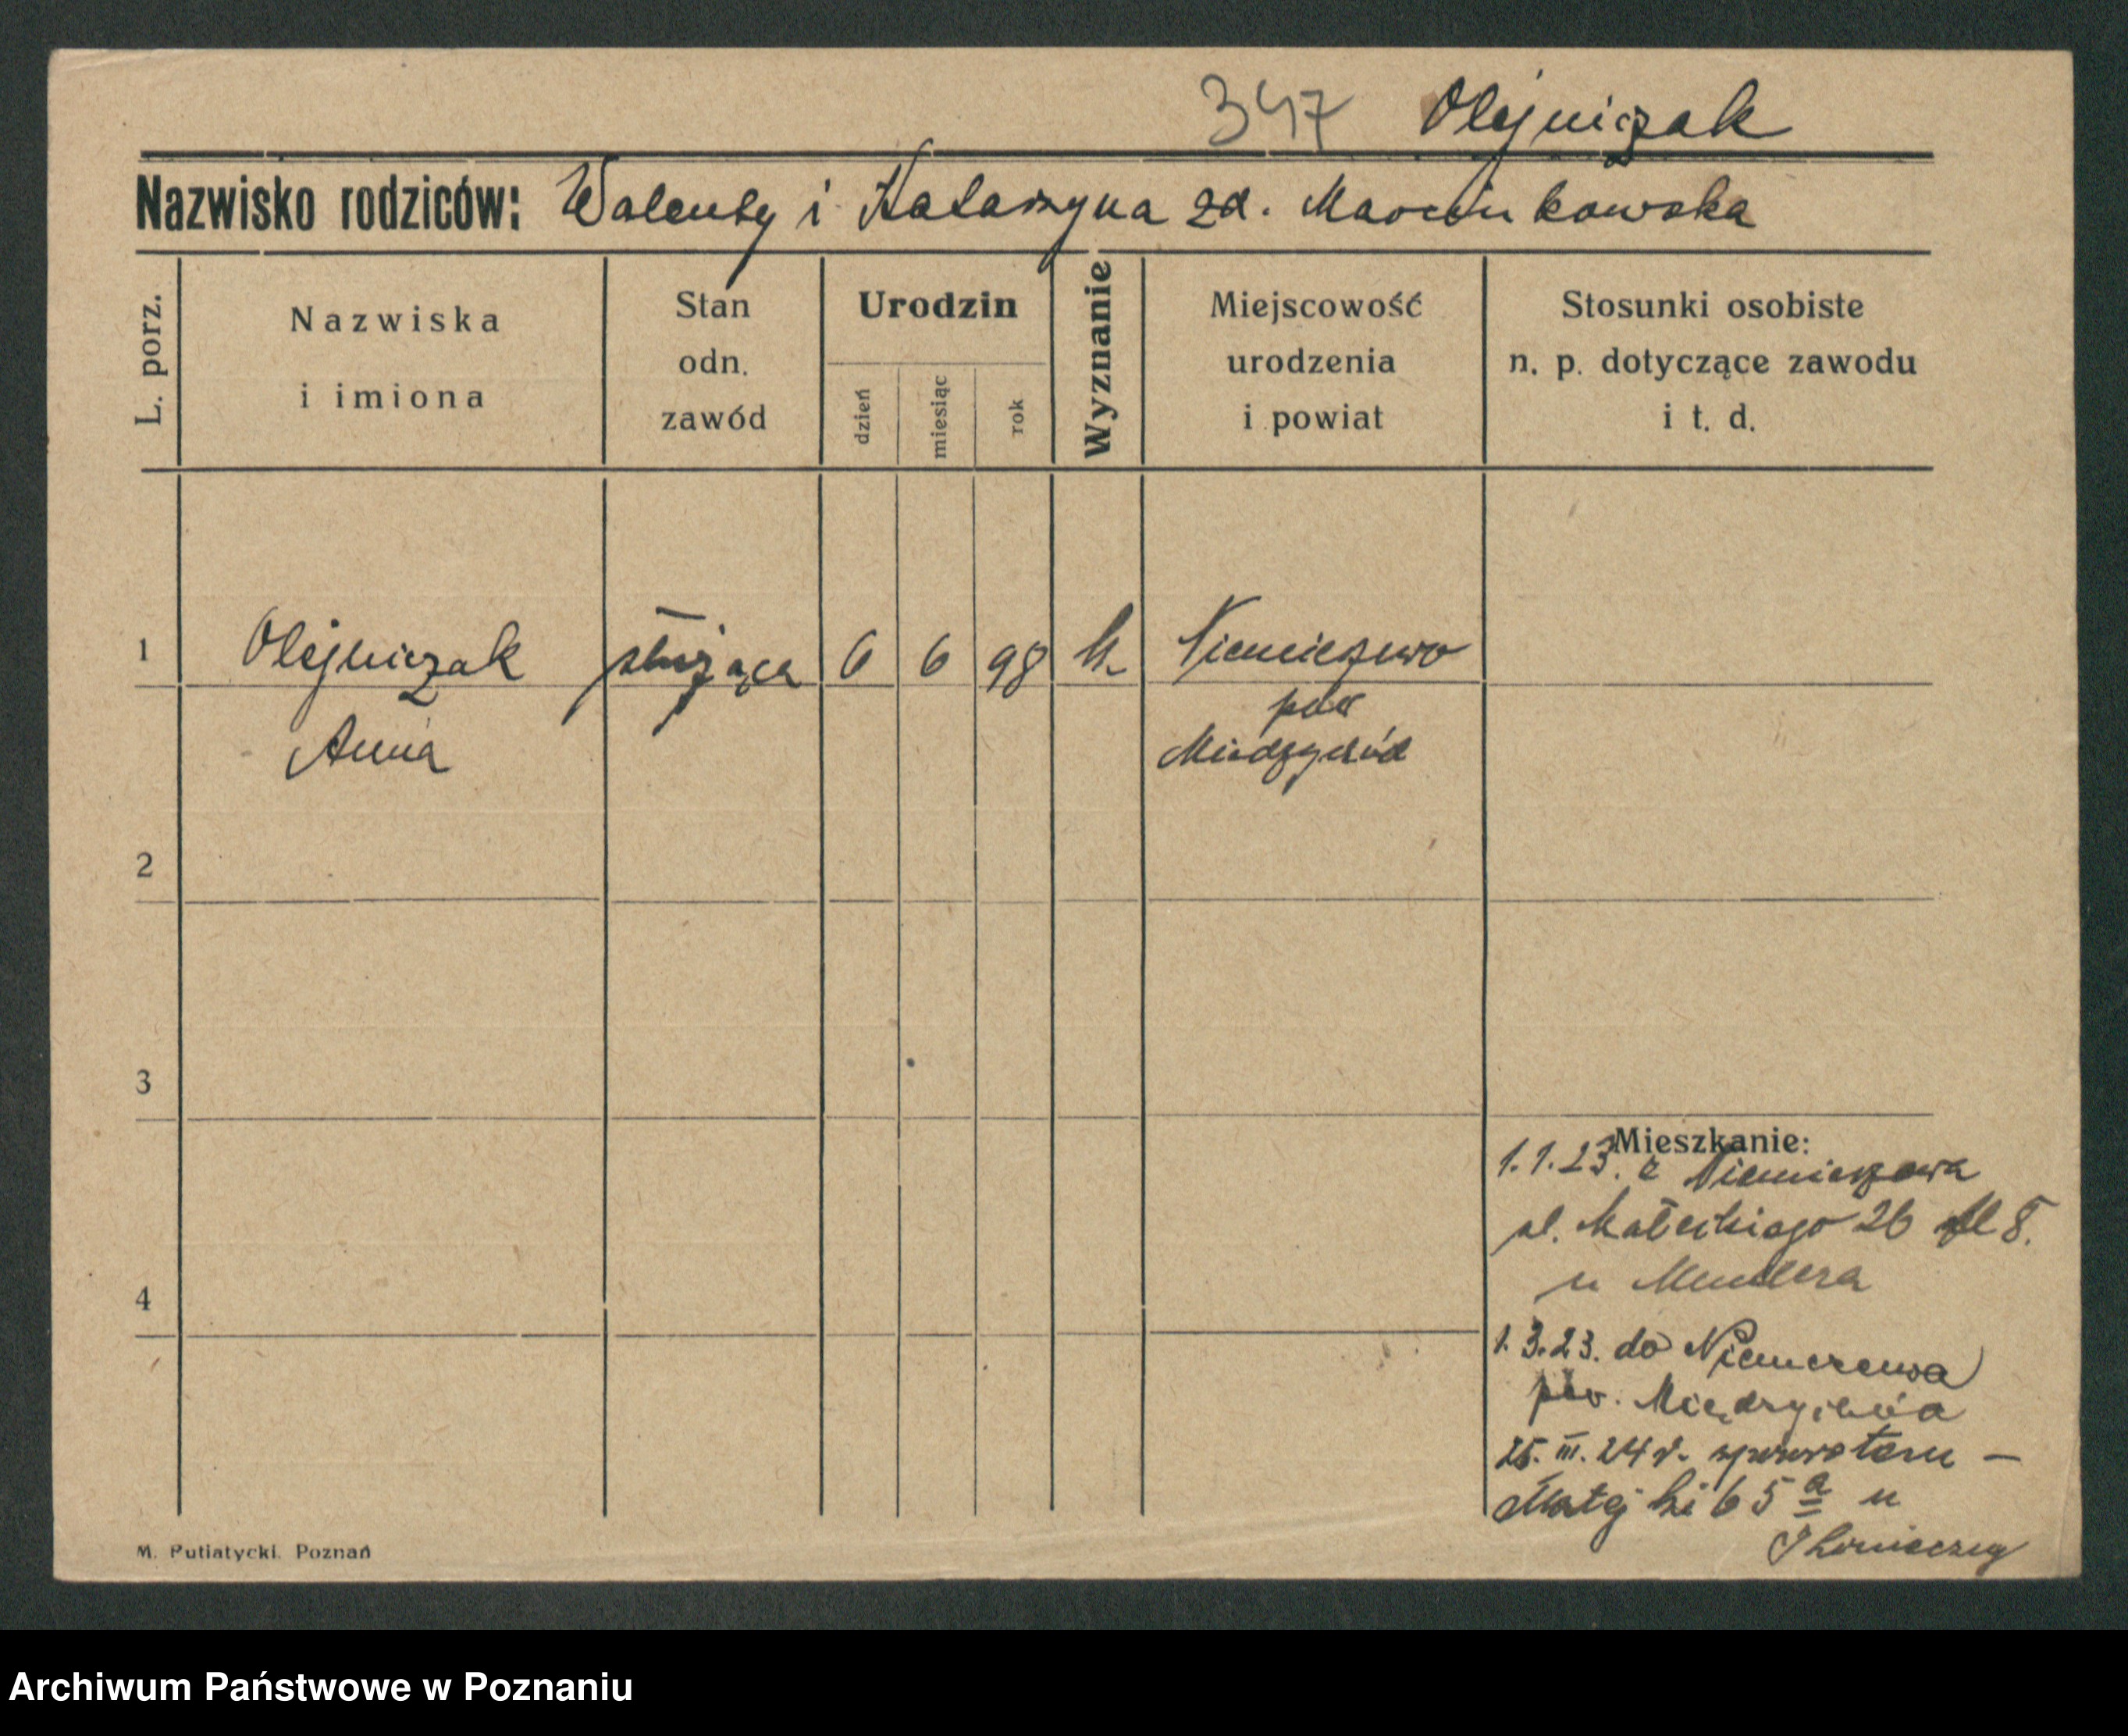 347 Olejniczak
Nazwisko rodziców: Walenty i Katarzyna zd. Marcinkowska
L. porz.
Nazwiska
i imiona
Stan
odn.
zawód
Urodzin
dzień
miesiąc
rok
Wyznanie
Miejscowość
urodzenia
i powiat
Stosunki osobiste
n. p. dotyczące zawodu
i t. d.
1 Olejniczak służąca 6 6 98 k. Niemieczewo
pow
Anna Międzychód
2
3
4
Mieszkanie:
1.1.23. z Niemieczewa
ul. Małeckiego 26 8.
u
1.3.23. do Niemczewa
pow. Międzychód
25. III. 24 r. zpowrotem —
Matejki 65 a u
M. Putiatycki. Poznań
Archiwum Państwowe w Poznaniu